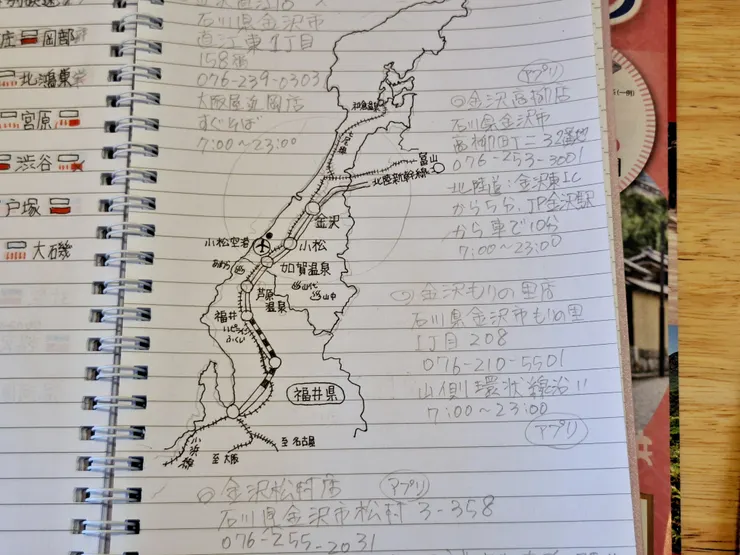 庄 岡部
北鴻巣
宮原
渋谷
戸塚
大磯
石川県金沢市
直江東1丁目
158番
076-239-0303
大阪屋近岡店
すぐそば
7:00~23:00
和倉温泉
七尾線
富山
北陸新幹線
金沢
小松空港
小松
加賀温泉
あわら
山代
山中
芦原
温泉
福井
ハピライン
ふくい
福井県
小浜線
至大阪
至名古屋
アプリ
石川県金沢市
076-253-3001
北陸道:金沢東IC
から5分、JP金沢駅
から車で10分
7:00~23:00
金沢もりの里店
石川県金沢市もりの里
1丁目 208
076-210-5501
山側環状線沿い
7:00~23:00
アプリ
金沢松村店 アプリ
石川県金沢市松村3-358
076-255-2031